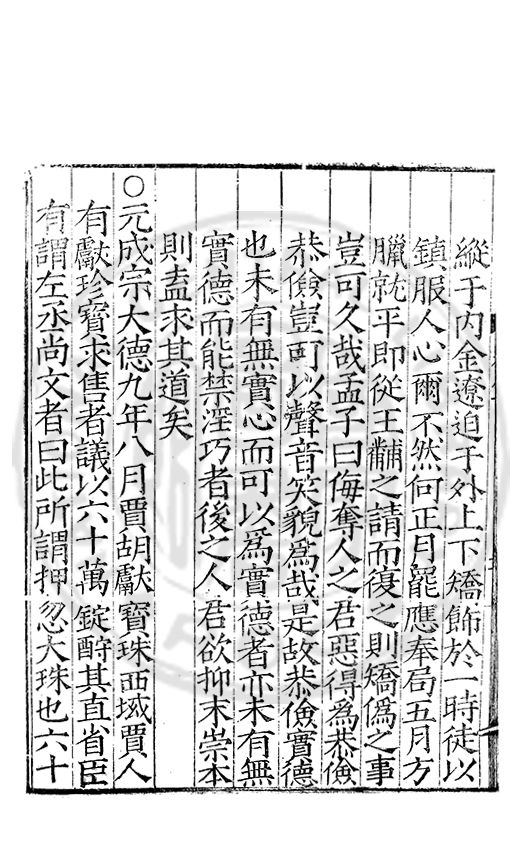 縱于內金遼迫于外上下矯飾於一時徒以
鎮服人心爾不然何正月罷應奉局五月方
臘就平即從王黼之請而復之則矯僞之事
豈可久哉孟子曰侮奪人之君惡得爲恭儉
恭儉豈可以聲音笑貌爲哉是故恭儉實德
也未有無實心而可以爲實德者亦未有無
實德而能禁淫巧者後之人君欲抑末崇本
則盍求其道矣
○元成宗大德九年八月賈胡獻寶珠西域賈人
有獻珍寶求售者議以六十萬錠酧其直省臣
有謂左丞尚文者曰此所謂押忽大珠也六十